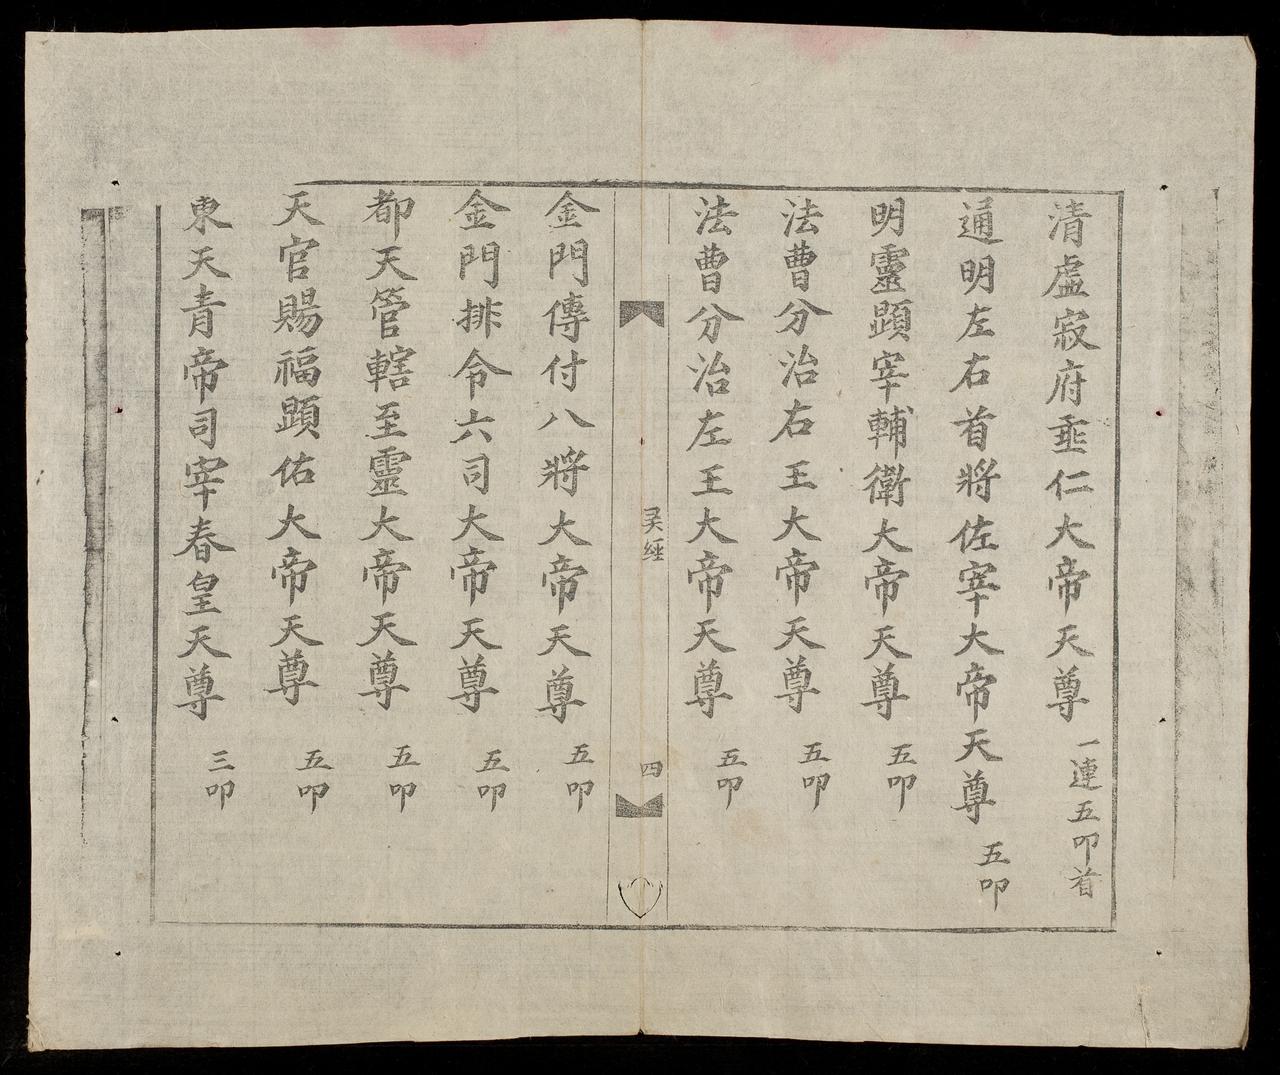 清虛寂府垂仁大帝天尊 一連五叩首
通明左右首將佐宰大帝天尊 五叩
明靈顕宰輔衛大帝天尊 五叩
法曹分治右王大帝天尊 五叩
法曹分治左王大帝天尊 五叩
經
四
金門傳付八將大帝天尊 五叩
金門排令六司大帝天尊 五叩
都天管轄至靈大帝天尊 五叩
天官賜福顕佑大帝天尊 五叩
東天青帝司宰春皇天尊 三叩